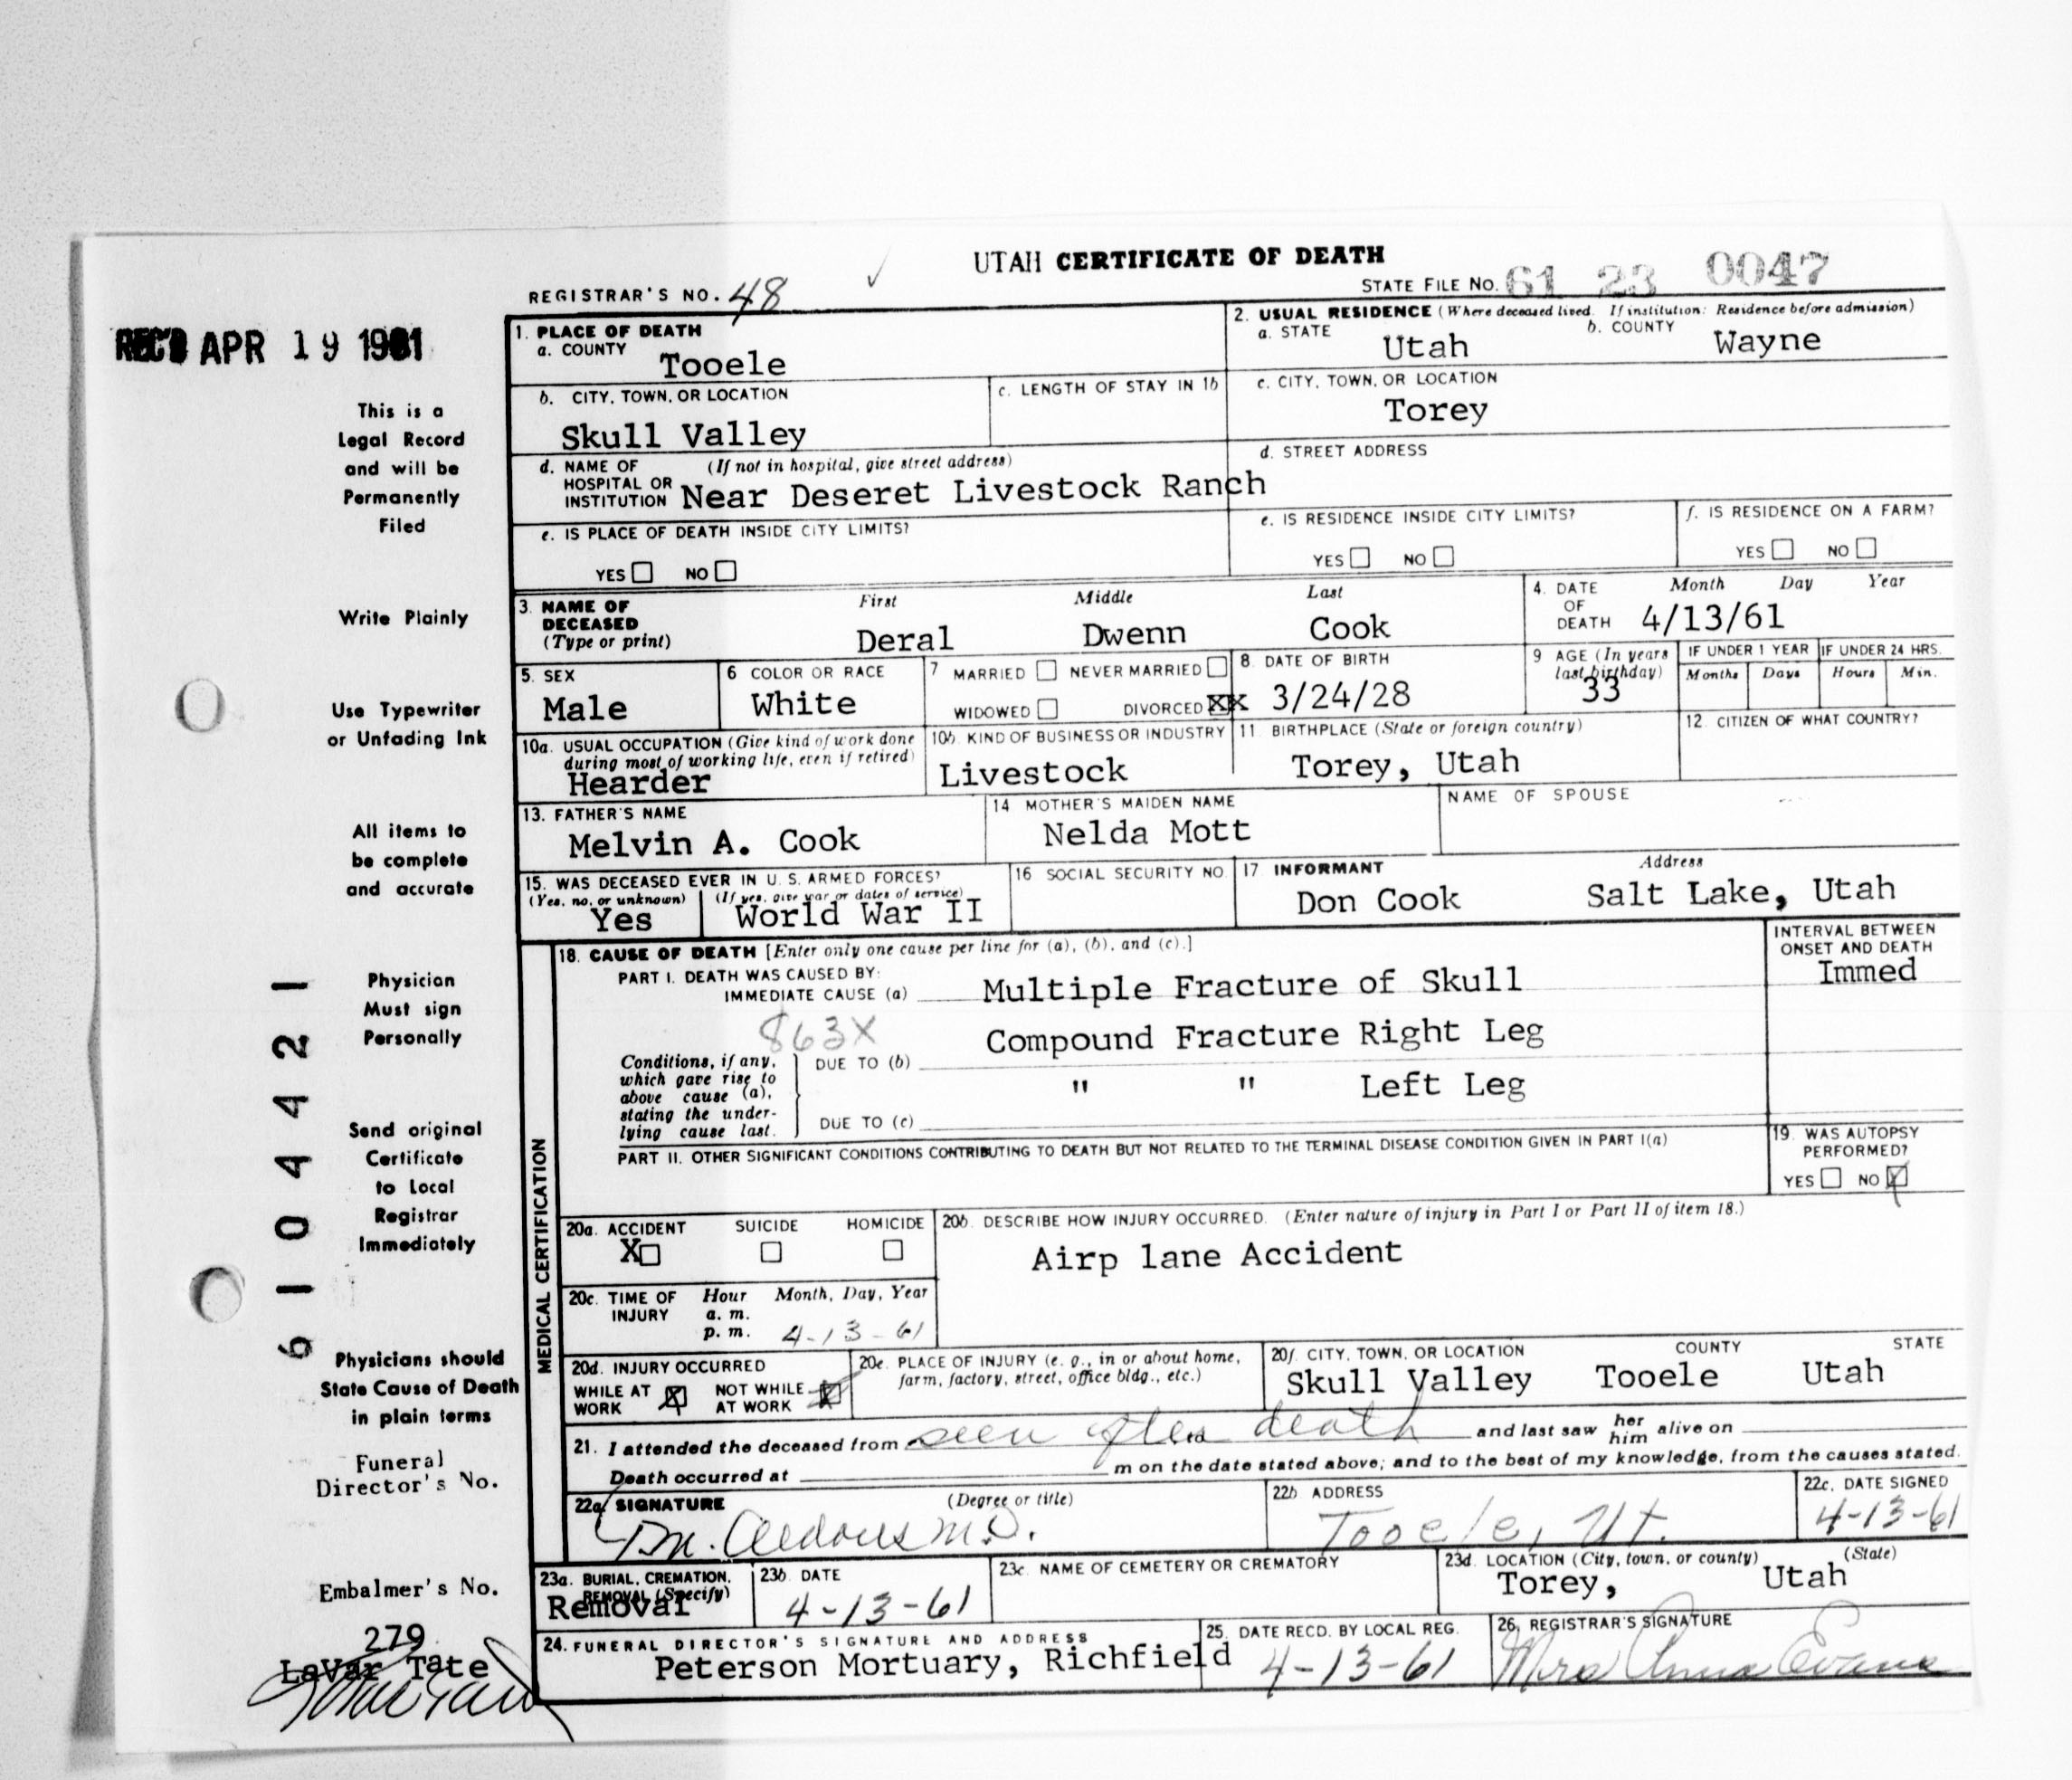 UTAH CERTIFICATE OF DEATH
REGISTRAR'S NO. 48
STATE FILE NO. 61 23 0047
REC'D APR 19 1961
This is a
Legal Record
and will be
Permanently
Filed
Write Plainly
Use Typewriter
or Unfading Ink
All items to
be complete
and accurate
Physician
Must sign
Personally
Send original
Certificate
to Local
Registrar
Immediately
Physicians should
State Cause of Death
in plain terms
Funeral
Director's No.
Embalmer's No.
279
LaVar Tate
6 1 0 4 4 2 1
1. PLACE OF DEATH
a. COUNTY
Tooele
2. USUAL RESIDENCE (Where deceased lived. If institution: Residence before admission)
a. STATE
Utah
b. COUNTY
Wayne
b. CITY, TOWN, OR LOCATION
Skull Valley
c. LENGTH OF STAY IN 1b
c. CITY, TOWN, OR LOCATION
Torey
d. NAME OF (If not in hospital, give street address)
HOSPITAL OR
INSTITUTION Near Deseret Livestock Ranch
d. STREET ADDRESS
e. IS PLACE OF DEATH INSIDE CITY LIMITS?
YES NO
e. IS RESIDENCE INSIDE CITY LIMITS?
YES NO
f. IS RESIDENCE ON A FARM?
YES NO
3. NAME OF
DECEASED
(Type or print)
First Middle Last
Deral Dwenn Cook
4. DATE Month Day Year
OF
DEATH 4/13/61
5. SEX
Male
6 COLOR OR RACE
White
7 MARRIED NEVER MARRIED
WIDOWED DIVORCED XX
8. DATE OF BIRTH
3/24/28
9 AGE (In years
last birthday)
33
IF UNDER 1 YEAR
Months Days
IF UNDER 24 HRS.
Hours Min.
10a. USUAL OCCUPATION (Give kind of work done
during most of working life, even if retired)
Hearder
10b. KIND OF BUSINESS OR INDUSTRY
Livestock
11. BIRTHPLACE (State or foreign country)
Torey, Utah
12. CITIZEN OF WHAT COUNTRY?
13. FATHER'S NAME
Melvin A. Cook
14 MOTHER'S MAIDEN NAME
Nelda Mott
NAME OF SPOUSE
15. WAS DECEASED EVER IN U. S. ARMED FORCES?
(Yes, no, or unknown) (If yes, give war or dates of service)
Yes World War II
16 SOCIAL SECURITY NO.
17 INFORMANT Address
Don Cook Salt Lake, Utah
MEDICAL CERTIFICATION
18. CAUSE OF DEATH [Enter only one cause per line for (a), (b), and (c).]
PART I. DEATH WAS CAUSED BY:
IMMEDIATE CAUSE (a) Multiple Fracture of Skull
INTERVAL BETWEEN
ONSET AND DEATH
Immed
863X
Compound Fracture Right Leg
Conditions, if any,
which gave rise to
above cause (a),
stating the under-
lying cause last.
DUE TO (b)
" " Left Leg
DUE TO (c)
PART II. OTHER SIGNIFICANT CONDITIONS CONTRIBUTING TO DEATH BUT NOT RELATED TO THE TERMINAL DISEASE CONDITION GIVEN IN PART I(a)
19. WAS AUTOPSY
PERFORMED?
YES NO X
20a. ACCIDENT SUICIDE HOMICIDE
X
20b. DESCRIBE HOW INJURY OCCURRED. (Enter nature of injury in Part I or Part II of item 18.)
Airp lane Accident
20c. TIME OF Hour Month, Day, Year
INJURY a. m.
p. m. 4-13-61
20d. INJURY OCCURRED
WHILE AT X NOT WHILE X
WORK AT WORK
20e. PLACE OF INJURY (e. g., in or about home,
farm, factory, street, office bldg., etc.)
20f. CITY, TOWN, OR LOCATION COUNTY STATE
Skull Valley Tooele Utah
21. I attended the deceased from seen after death and last saw her him alive on
Death occurred at m on the date stated above; and to the best of my knowledge, from the causes stated.
22a. SIGNATURE (Degree or title)
M.D.
22b ADDRESS
Tooele, Ut.
22c. DATE SIGNED
4-13-61
23a. BURIAL, CREMATION,
REMOVAL (Specify)
Removal
23b. DATE
4-13-61
23c. NAME OF CEMETERY OR CREMATORY
23d. LOCATION (City, town, or county) (State)
Torey, Utah
24. FUNERAL DIRECTOR'S SIGNATURE AND ADDRESS
Peterson Mortuary, Richfield
25. DATE RECD. BY LOCAL REG.
4-13-61
26. REGISTRAR'S SIGNATURE
Mrs Anna Evans